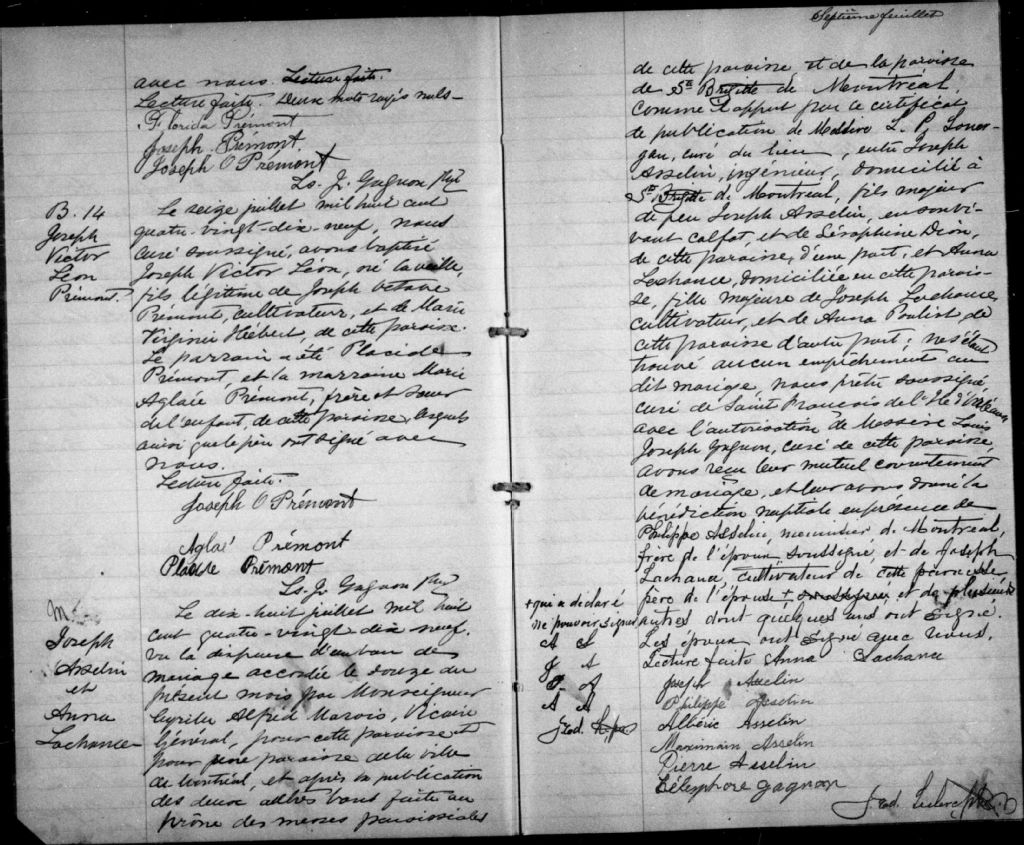 Septième feuillet
avec nous. Lecture faite.
Lecture faite. Deux mots rayés nuls.
Florida Prémont
Joseph Prémont.
Joseph O Prémont
Ls. J. Gagnon Ptre
B. 14
Joseph
Victor
Léon
Prémont.
Le seize juillet mil huit cent
quatre-vingt-dix-neuf, nous
curé soussigné, avons baptisé
Joseph Victor Léon, né la veille,
fils légitime de Joseph Octave
Prémont, cultivateur, et de Marie
Virginie Hébert, de cette paroisse.
Le parrain a été Placide
Prémont, et la marraine Marie
Aglaée Prémont, frère et soeur
de l'enfant, de cette paroisse, lesquels
ainsi que le père ont signé avec
nous.
Lecture faite.
Joseph O Prémont
Aglaé Prémont
Placide Prémont
Ls. J. Gagnon Ptre
M.
Joseph
Asselin
et
Anna
Lachance
Le dix-huit juillet mil huit
cent quatre-vingt dix neuf,
vu la dispense d'un ban de
mariage accordée le douze du
présent mois par Monseigneur
Cyrille Alfred Marois, Vicaire
Général, pour cette paroisse et
pour une paroisse de la ville
de Montréal, et après la publication
des deux autres bans faite au
prône des messes paroissiales
de cette paroisse et de la paroisse
de Ste Brigitte de Montréal,
comme il appert par le certificat
de publication de Messire L. P. Loner-
gan, curé du lieu, entre Joseph
Asselin, ingénieur, domicilié à
Ste Brigitte de Montréal, fils majeur
de feu Joseph Asselin, en son vi-
vant calfat, et de Séraphine Dion,
de cette paroisse, d'une part, et Anna
Lachance, domiciliée en cette parois-
se, fille majeure de Joseph Lachance
cultivateur, et de Anna Pouliot, de
cette paroisse d'autre part; ne s'étant
trouvé aucun empêchement au
dit mariage, nous prêtre soussigné,
curé de Saint François de l'Ile d'Orléans
avec l'autorisation de Messire Louis
Joseph Gagnon, curé de cette paroisse,
avons reçu leur mutuel consentement
de mariage, et leur avons donné la
bénédiction nuptiale en présence de
Philippe Asselin, menuisier de Montréal,
frère de l'époux soussigné et de Joseph
Lachance, cultivateur de cette paroisse
père de l'épouse + et de plusieurs
autres dont quelques uns ont signé.
Les époux ont signé avec nous.
+ qui a déclaré
ne pouvoir signer
A L
J A
P. A
A A
Lecture faite Anna Lachance
Joseph Asselin
Philippe Asselin
Albéric Asselin
Maximain Asselin
Pierre Asselin
Télesphore Gagnon